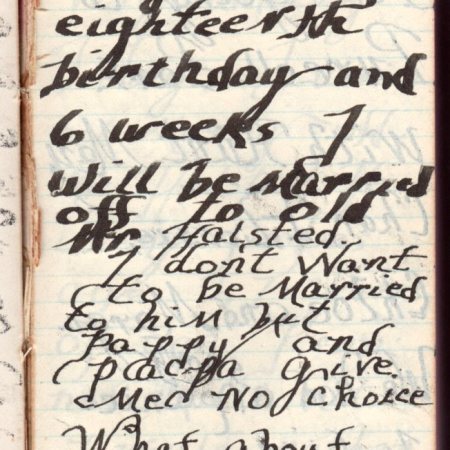 eighteenth
birthday and
6 weeks I
Will be Married
off to old
Mr. Halsted.
I don't Want
to be Married
to him but
Pappy and
give
Mee No Choice
What about